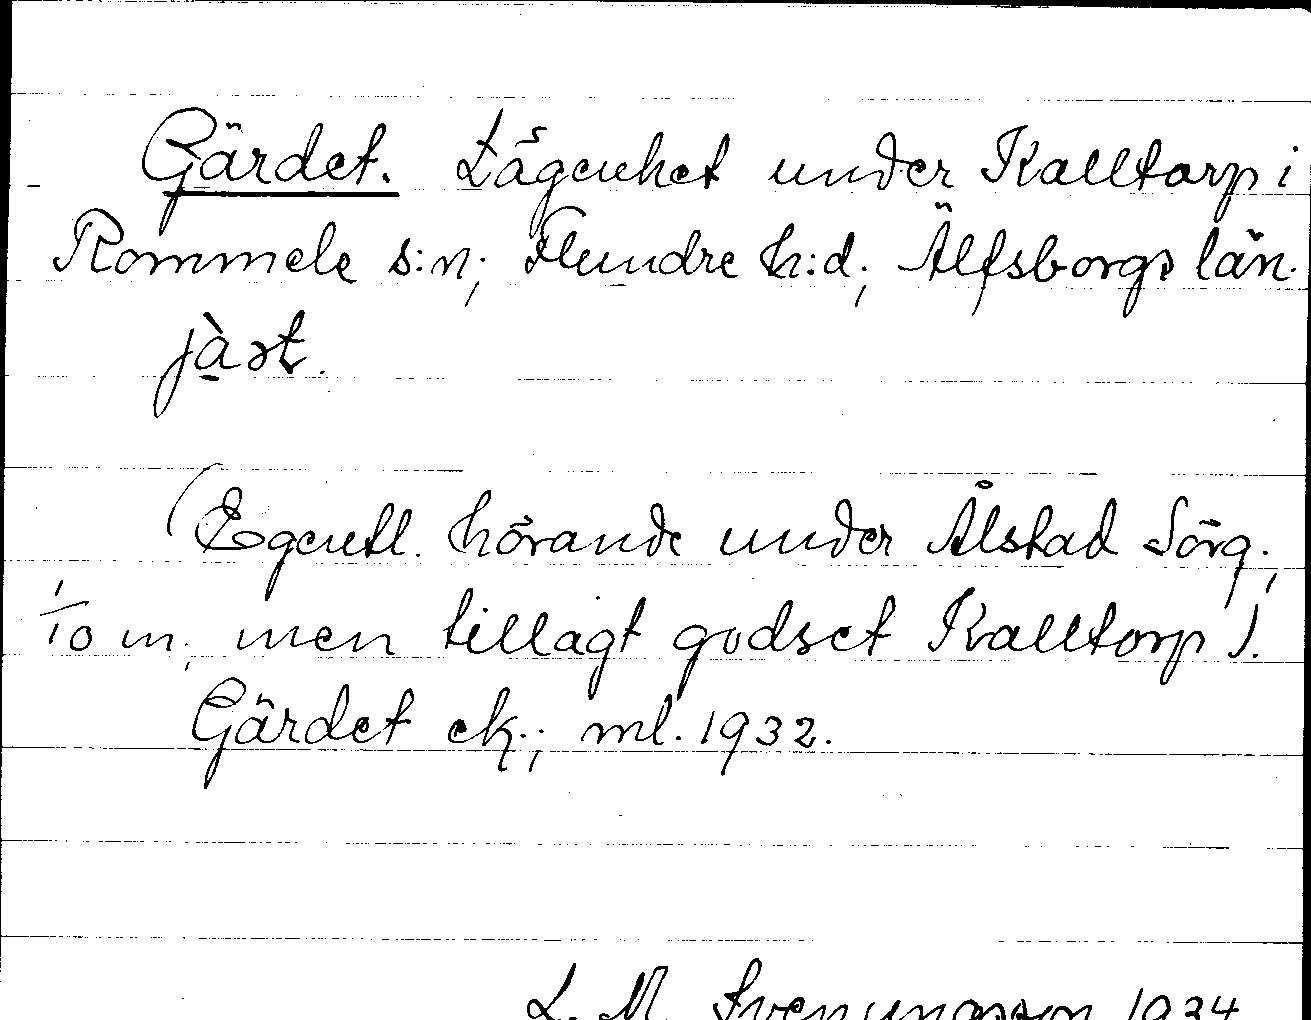 Gärdet. Lägenhet under Kalltorp i
Rommele s:n; Flundre h:d; Älfsborgs län.
jàṣt.
(Egentl. hörande under Ålstad Sörg.,
1/10 m; men tillagt godset Kalltorp).
Gärdet ek.; ml. 1932.
L. M. Svenungsson 1934